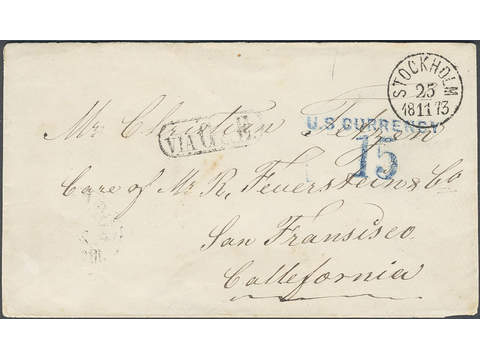 STOCKHOLM
25
18 11 73
U.S. CURRENCY
15
Mr
VIA
Care of Mr R. Feuerstein & Co
San Fransisco
Callefornia